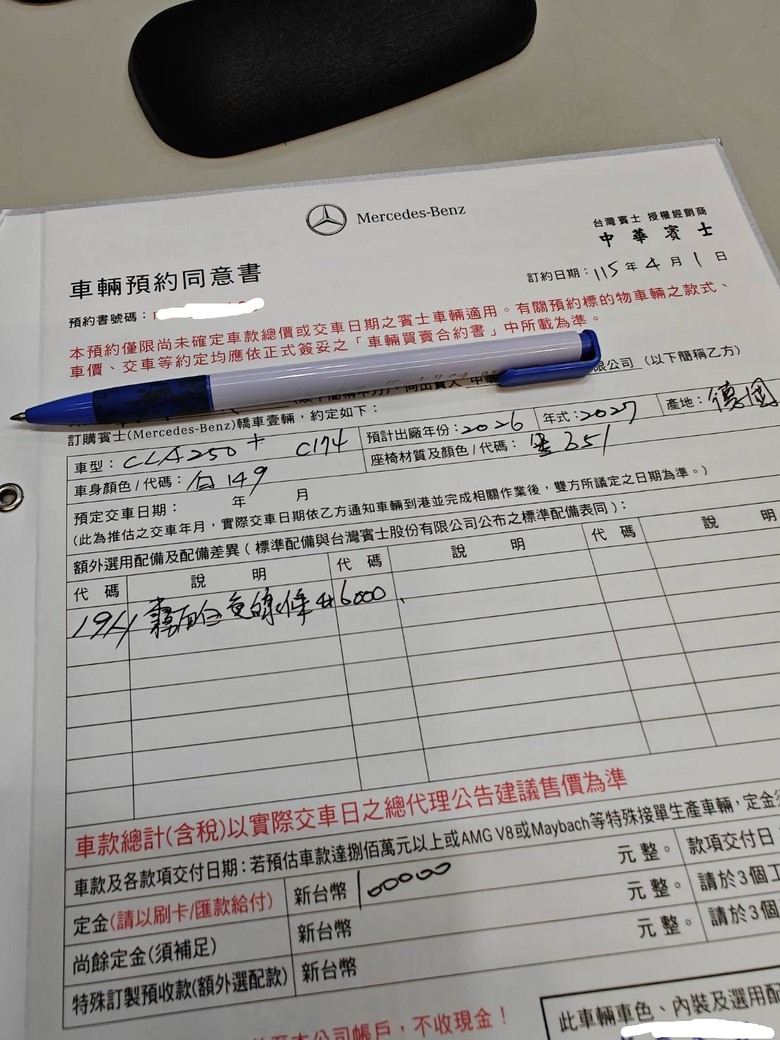 Mercedes-Benz
台灣賓士 授權經銷商
中華賓士
車輛預約同意書
訂約日期：115年4月1日
預約書號碼：
本預約僅限尚未確定車款總價或交車日期之賓士車輛適用。有關預約標的物車輛之款式、
車價、交車等約定均應依正式簽妥之「車輛買賣合約書」中所載為準。
限公司（以下簡稱乙方）
訂購賓士(Mercedes-Benz)轎車壹輛，約定如下：
車型：CLA250+ C174 預計出廠年份：2026 年式：2027 產地：德國
車身顏色/代碼：白149 座椅材質及顏色/代碼：黑651
預定交車日期： 年 月
(此為推估之交車年月，實際交車日期依乙方通知車輛到港並完成相關作業後，雙方所議定之日期為準。)
額外選用配備及配備差異(標準配備與台灣賓士股份有限公司公布之標準配備表同)：
代碼 說明 代碼 說明 代碼 說明
6000
車款總計(含稅)以實際交車日之總代理公告建議售價為準
車款及各款項交付日期：若預估車款達捌佰萬元以上或AMG V8或Maybach等特殊接單生產車輛，定金
定金(請以刷卡/匯款給付) 新台幣 100000 元整。 款項交付日
尚餘定金(須補足) 新台幣 元整。 請於3個工
特殊訂製預收款(額外選配款) 新台幣 元整。 請於3個
本公司帳戶，不收現金！
此車輛車色、內裝及選用配